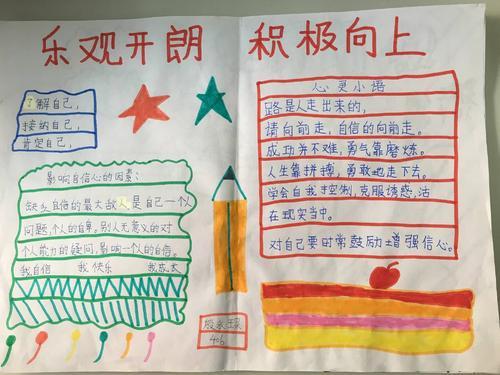 乐观开朗 积极向上
了解自己，
接纳自己，
肯定自己，
影响自信心的因素：
缺少自信的最大敌人是自己一个
问题，个人的自卑。别人无意义的对
个人能力的疑问，影响一个的自信。
我自信 我快乐 我成太
心灵小语
路是人走出来的，
请向前走，自信的向前走。
成功并不难，勇气靠磨炼。
人生靠拼搏，勇敢地走下去。
学会自我控制，克服诱惑，活
在现实当中。
对自己要时常鼓励增强信心。
406